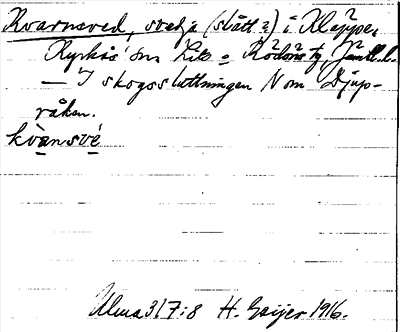 Kvarnsved, svedja (slått?) i Kläppe,
Kyrkås sn Lits o Rödöns tg, Jämtl. l.
— I skogssluttningen N om Djup-
råken.
kvànsvé
Ulma 317:8 H. Geijer 1916.